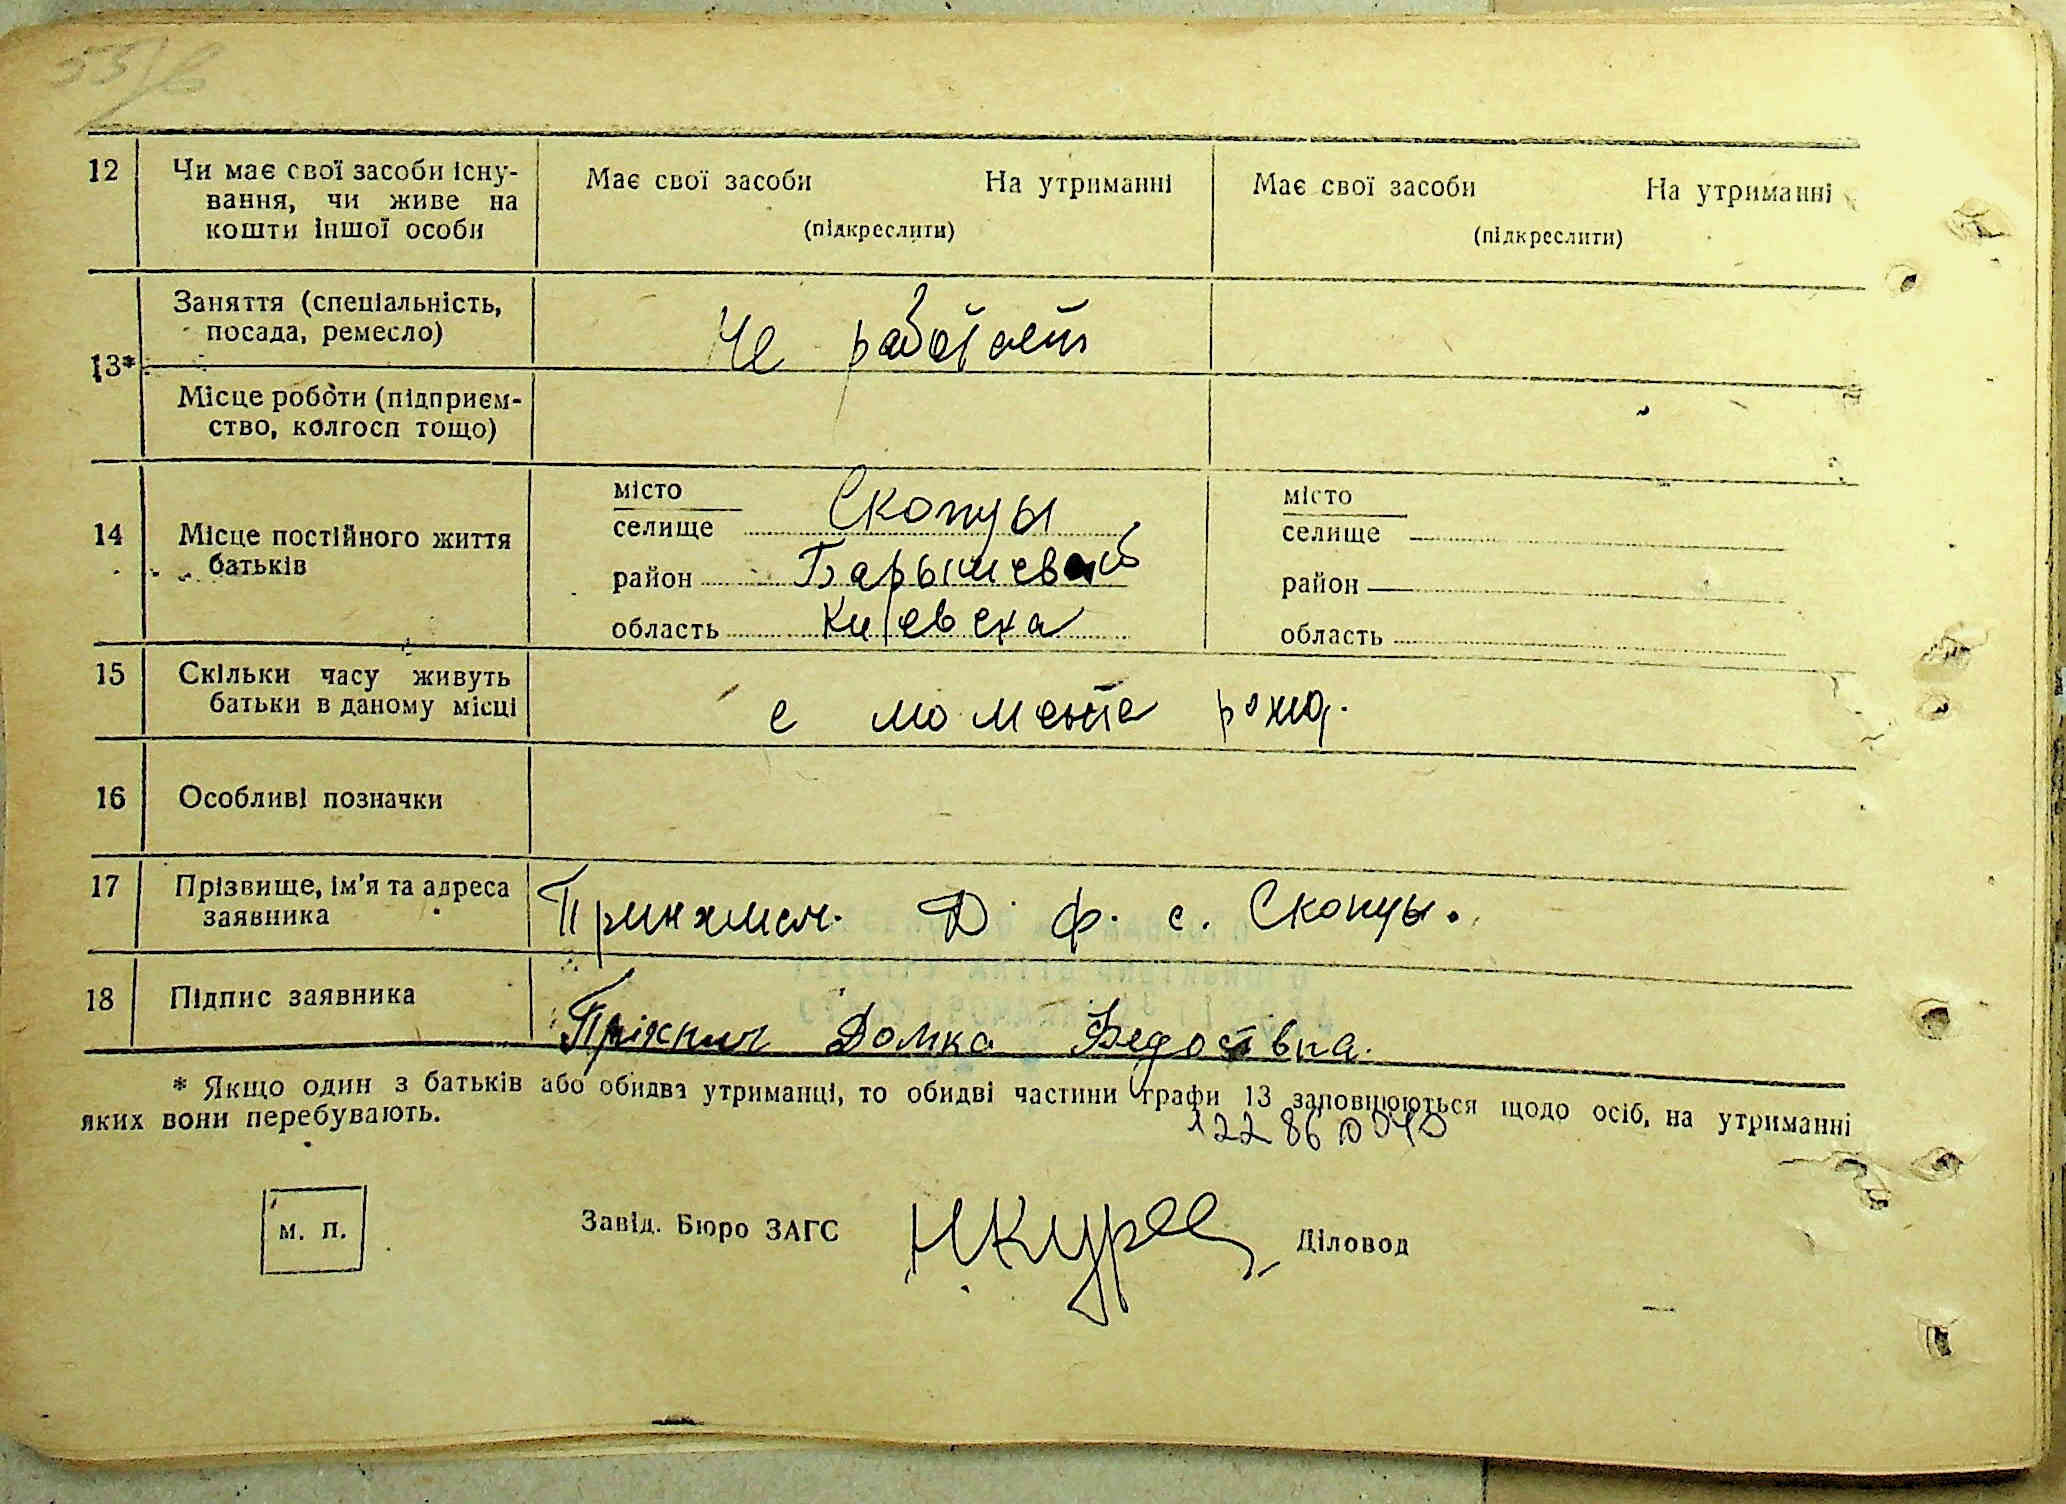 12 Чи має свої засоби існу- Має свої засоби На утриманні Має свої засоби На утриманні
вання, чи живе на
кошти іншої особи (підкреслити) (підкреслити)
Заняття (спеціальність,
посада, ремесло) Не работает
13*
Місце роботи (підприєм-
ство, колгосп тощо)
місто місто
14 Місце постійного життя селище Скопцы селище
батьків район Барышевский район
область Киевска область
15 Скільки часу живуть
батьки в даному місці с момента рожд.
16 Особливі позначки
17 Прізвище, ім'я та адреса
заявника Д. Ф. с. Скопцы.
18 Підпис заявника Домка Федотівна.
* Якщо один з батьків або обидва утриманці, то обидві частини графи 13 заповнюються щодо осіб, на утриманні
яких вони перебувають.
м. п. Завід. Бюро ЗАГС Діловод